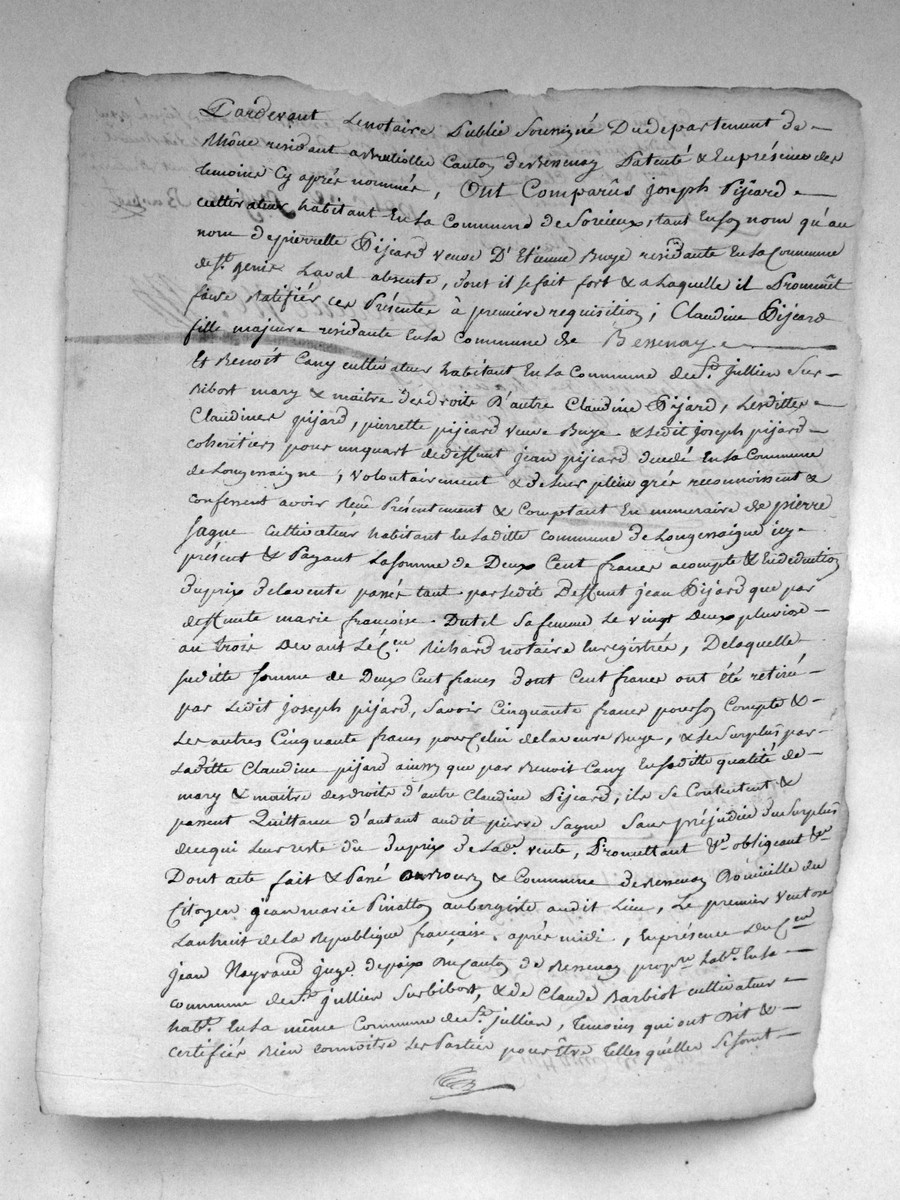 Pardevant Lenotaire Public Soussigné Du departement de
Rhône residant a Brullioles Canton de Bessenay Patenté & En presence des
temoins Cy après nommés, Ont Comparûs joseph Pijeard
cultivateur habitant En La Commune de Sourcieux, tant En son nom qu'au
nom de pierrette Pijeard veuve D'Etienne Buye residante En La Commune
de St. genis Laval absente, dont il se fait fort & a Laquelle il Promêt
faire Ratifier ces Présentes à première requisition; Claudine Pijeard
fille majeure residante En La Commune de Bessenay
Et Benoit Cany cultivateur habitant En La Commune de St. Jullien Sur
Bibort mary & maitre des droits D'autre Claudine Pijard, Lesdittes
Claudines pijard, pierrette pijeard veuve Buye & Ledit joseph pijard
coheritiers pour un quart de deffunt jean pijeard décédé En La Commune
de Longessaigne; volontairement & de Leur plein grée reconnoissent &
confessent avoir Reçu Présentement & Comptant En numeraire de pierre
Sagne cultivateur habitant En Laditte commune de Longessaigne icy
présent & Payant La somme de Deux Cent francs acompte & En deduction
du prix de la vente passée tant par Ledit Deffunt jean Pijard que par
deffunte marie françoise Dutel Sa femme Le vingt Deux pluviose
an trois Devant Le Cen. Richard notaire Enregistrée, De laquelle
susditte Somme de Deux Cent francs dont Cent francs ont été retirés
par Ledit joseph pijard, Savoir Cinquante francs pour son Compte &
Les autres Cinquante francs pour Celui de la veuve Buye, & Le Surplus par
Laditte Claudine pijard ainsy que par Benoit Cany En saditte qualité de
mary & maître des droits d'autre Claudine Pijeard, ils Se Contentent &
passent Quittance d'autant audit pierre Sagne Sans préjudice du Surplus
de ce qui Leur reste dû du prix de Lade. vente, Promettant &a obligeant &a
Dont acte fait & Passé au Bourg & Commune de Bessenay Domicile du
Citoyen jean marie Pinatton aubergiste audit Lieu, Le premier ventose
Lan huit de la Republique française, après midi, En présence Du Cen
jean Nayraud juge de paix Du Canton de Bessenay propre. habt. En La
commune de St. jullien Sur bibort, & de Claude Barbiot cultivateur
habt. En La même Commune de St. jullien, temoins qui ont Dit &
certifiés Bien connoitre Les Parties pour être Telles qu'elles Se Sont